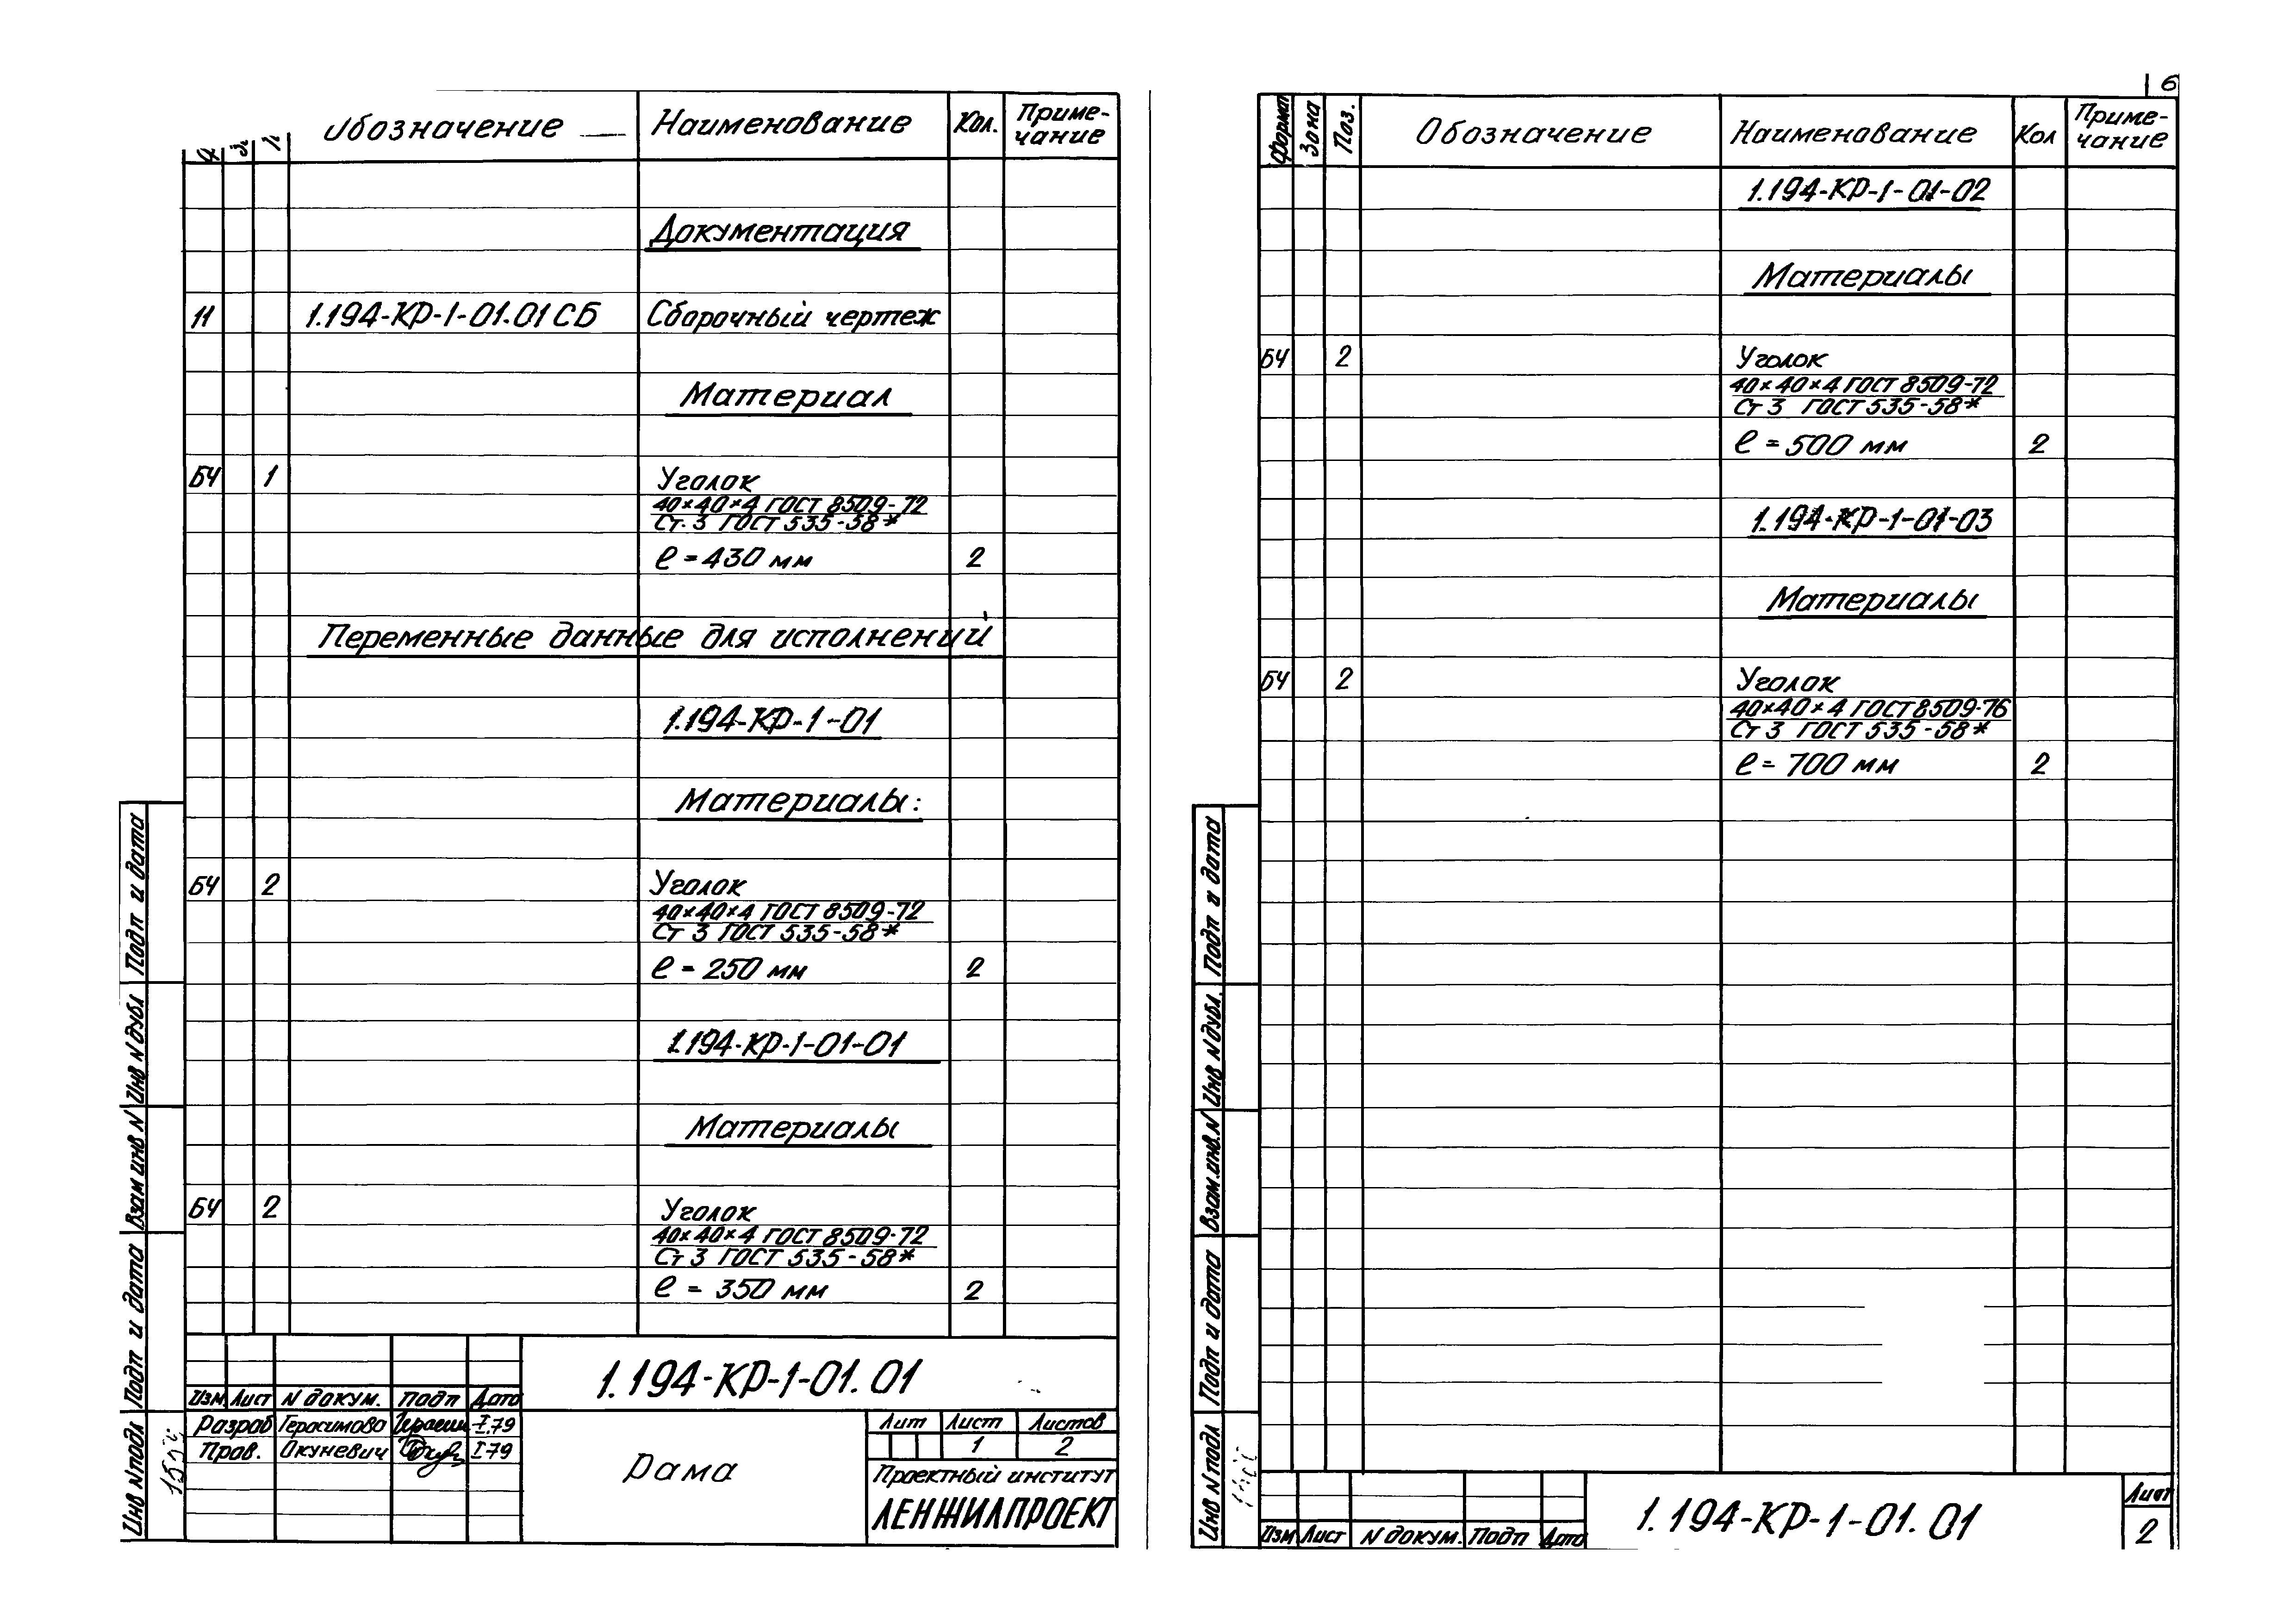 Обозначение Наименование Кол. Приме-
чание
Документация
11 1.194-КР-1-01.01СБ Сборочный чертеж
Материал
БЧ 1 Уголок
40×40×4 ГОСТ 8509-72
Ст. 3 ГОСТ 535-58*
ℓ = 430 мм 2
Переменные данные для исполнений
1.194-КР-1-01
Материалы:
БЧ 2 Уголок
40×40×4 ГОСТ 8509-72
Ст 3 ГОСТ 535-58*
ℓ = 250 мм 2
1.194-КР-1-01-01
Материалы
БЧ 2 Уголок
40×40×4 ГОСТ 8509-72
Ст 3 ГОСТ 535-58*
ℓ = 350 мм 2
Подп и дата
Инв N дубл
Взам инв N
Подп и дата
Инв N подл
1.194-КР-1-01.01
Изм Лист N докум. Подп Дата
Разраб Герасимова I.79
Пров. Окуневич I79
Рама
Лит Лист Листов
1 2
Проектный институт
ЛЕНЖИЛПРОЕКТ
6
Формат Зона Поз. Обозначение Наименование Кол Приме-
чание
1.194-КР-1-01-02
Материалы
БЧ 2 Уголок
40×40×4 ГОСТ 8509-72
Ст 3 ГОСТ 535-58*
ℓ = 500 мм 2
1.194-КР-1-01-03
Материалы
БЧ 2 Уголок
40×40×4 ГОСТ 8509-76
Ст 3 ГОСТ 535-58*
ℓ = 700 мм 2
Подп и дата
Инв N дубл.
Взам.инв.N
Подп и дата
Инв N подл
Изм Лист N докум. Подп Дата
1.194-КР-1-01.01
Лист
2